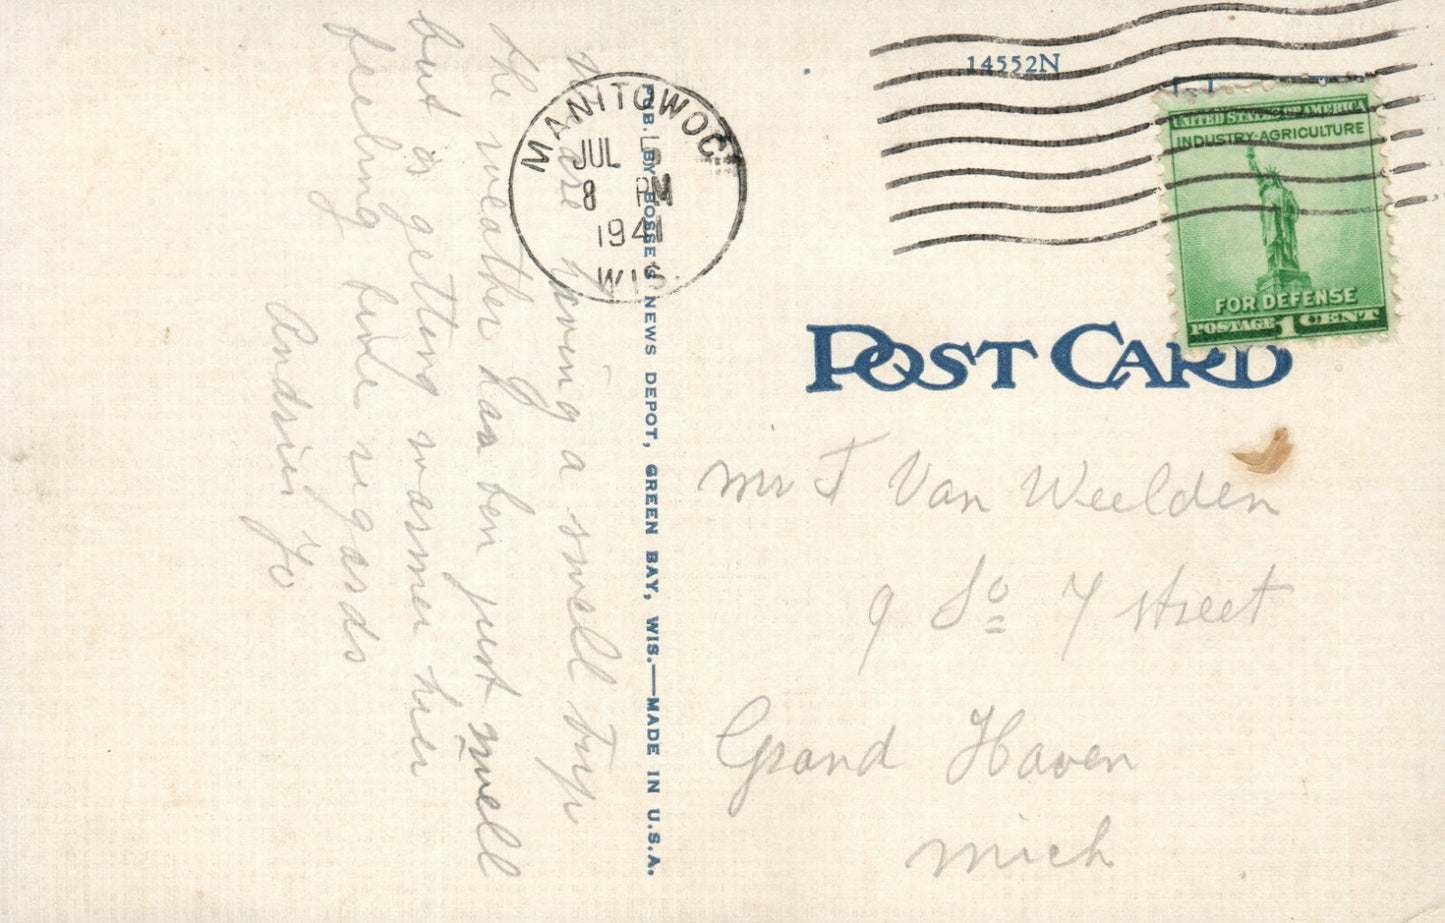 14552N
MANITOWOC
JUL 5
8 PM
1941
WIS.
UNITED STATES OF AMERICA
INDUSTRY-AGRICULTURE
FOR DEFENSE
POSTAGE 1 CENT
POST CARD
PUB. BY BOSSE'S NEWS DEPOT, GREEN BAY, WIS.—MADE IN U.S.A.
are having a swell trip
the weather has ben just swell
but is getting warmer hier
feeling fine regards
Mr J Van Weelden
9 So 7 street
Grand Haven
Mich